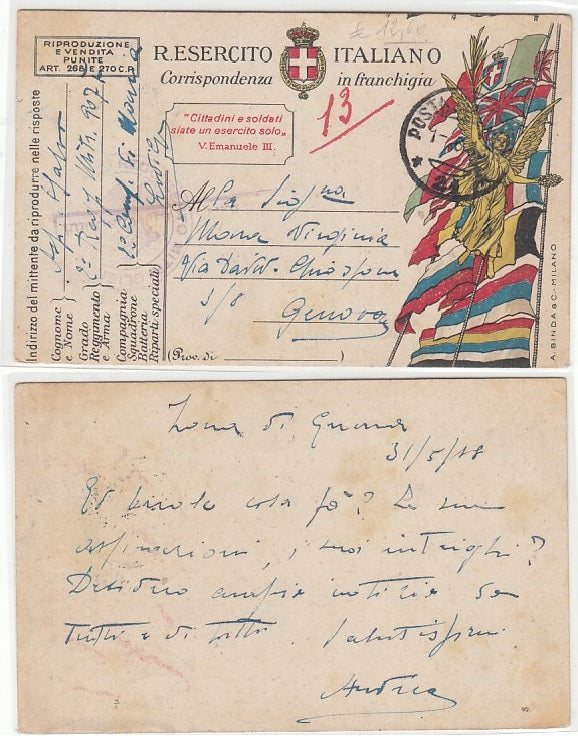 € 12,00
RIPRODUZIONE
E VENDITA
PUNITE
ART. 268 E 270 C.P.
R. ESERCITO ITALIANO
Corrispondenza in franchigia
"Cittadini e soldati
siate un esercito solo„
V. Emanuele III.
13
POSTA
Indirizzo del mittente da riprodurre nelle risposte
Cognome
e Nome
Grado
Reggimento
e Arma
Compagnia
Squadrone
Batteria
Riparti speciali
Alla Sig.na
Mona Virginia
Via David Chiossone
5/8
Genova
(Prov. di
A. BINDA & C. - MILANO
Zona di Guerra
31/5/18
Ed cosa fa? Le sue
aspirazioni, i suoi intrighi?
Desidero ampie notizie su
tutto e di tutti. Salutissimi
Andrea